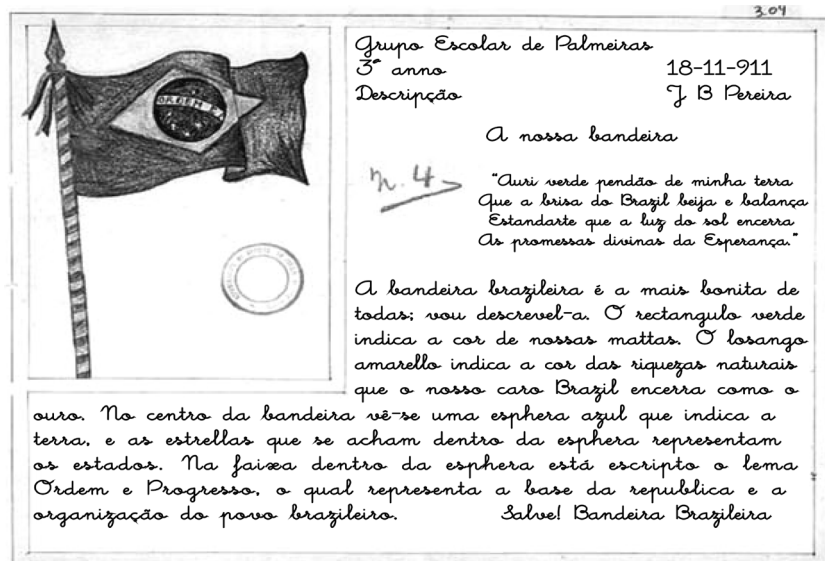 3.04
Grupo Escolar de Palmeiras
3º anno 18-11-911
Descripção J B Pereira
A nossa bandeira
n. 4
"Auri verde pendão de minha terra
Que a brisa do Brazil beija e balança
Estandarte que a luz do sol encerra
As promessas divinas da Esperança."
A bandeira brazileira é a mais bonita de
todas; vou descrevel-a. O rectangulo verde
indica a cor de nossas mattas. O losango
amarello indica a cor das riquezas naturais
que o nosso caro Brazil encerra como o
ouro. No centro da bandeira vê-se uma esphera azul que indica a
terra, e as estrellas que se acham dentro da esphera representam
os estados. Na faixa dentro da esphera está escripto o lema
Ordem e Progresso, o qual representa a base da republica e a
organização do povo brazileiro. Salve! Bandeira Brazileira
ORDEM E P